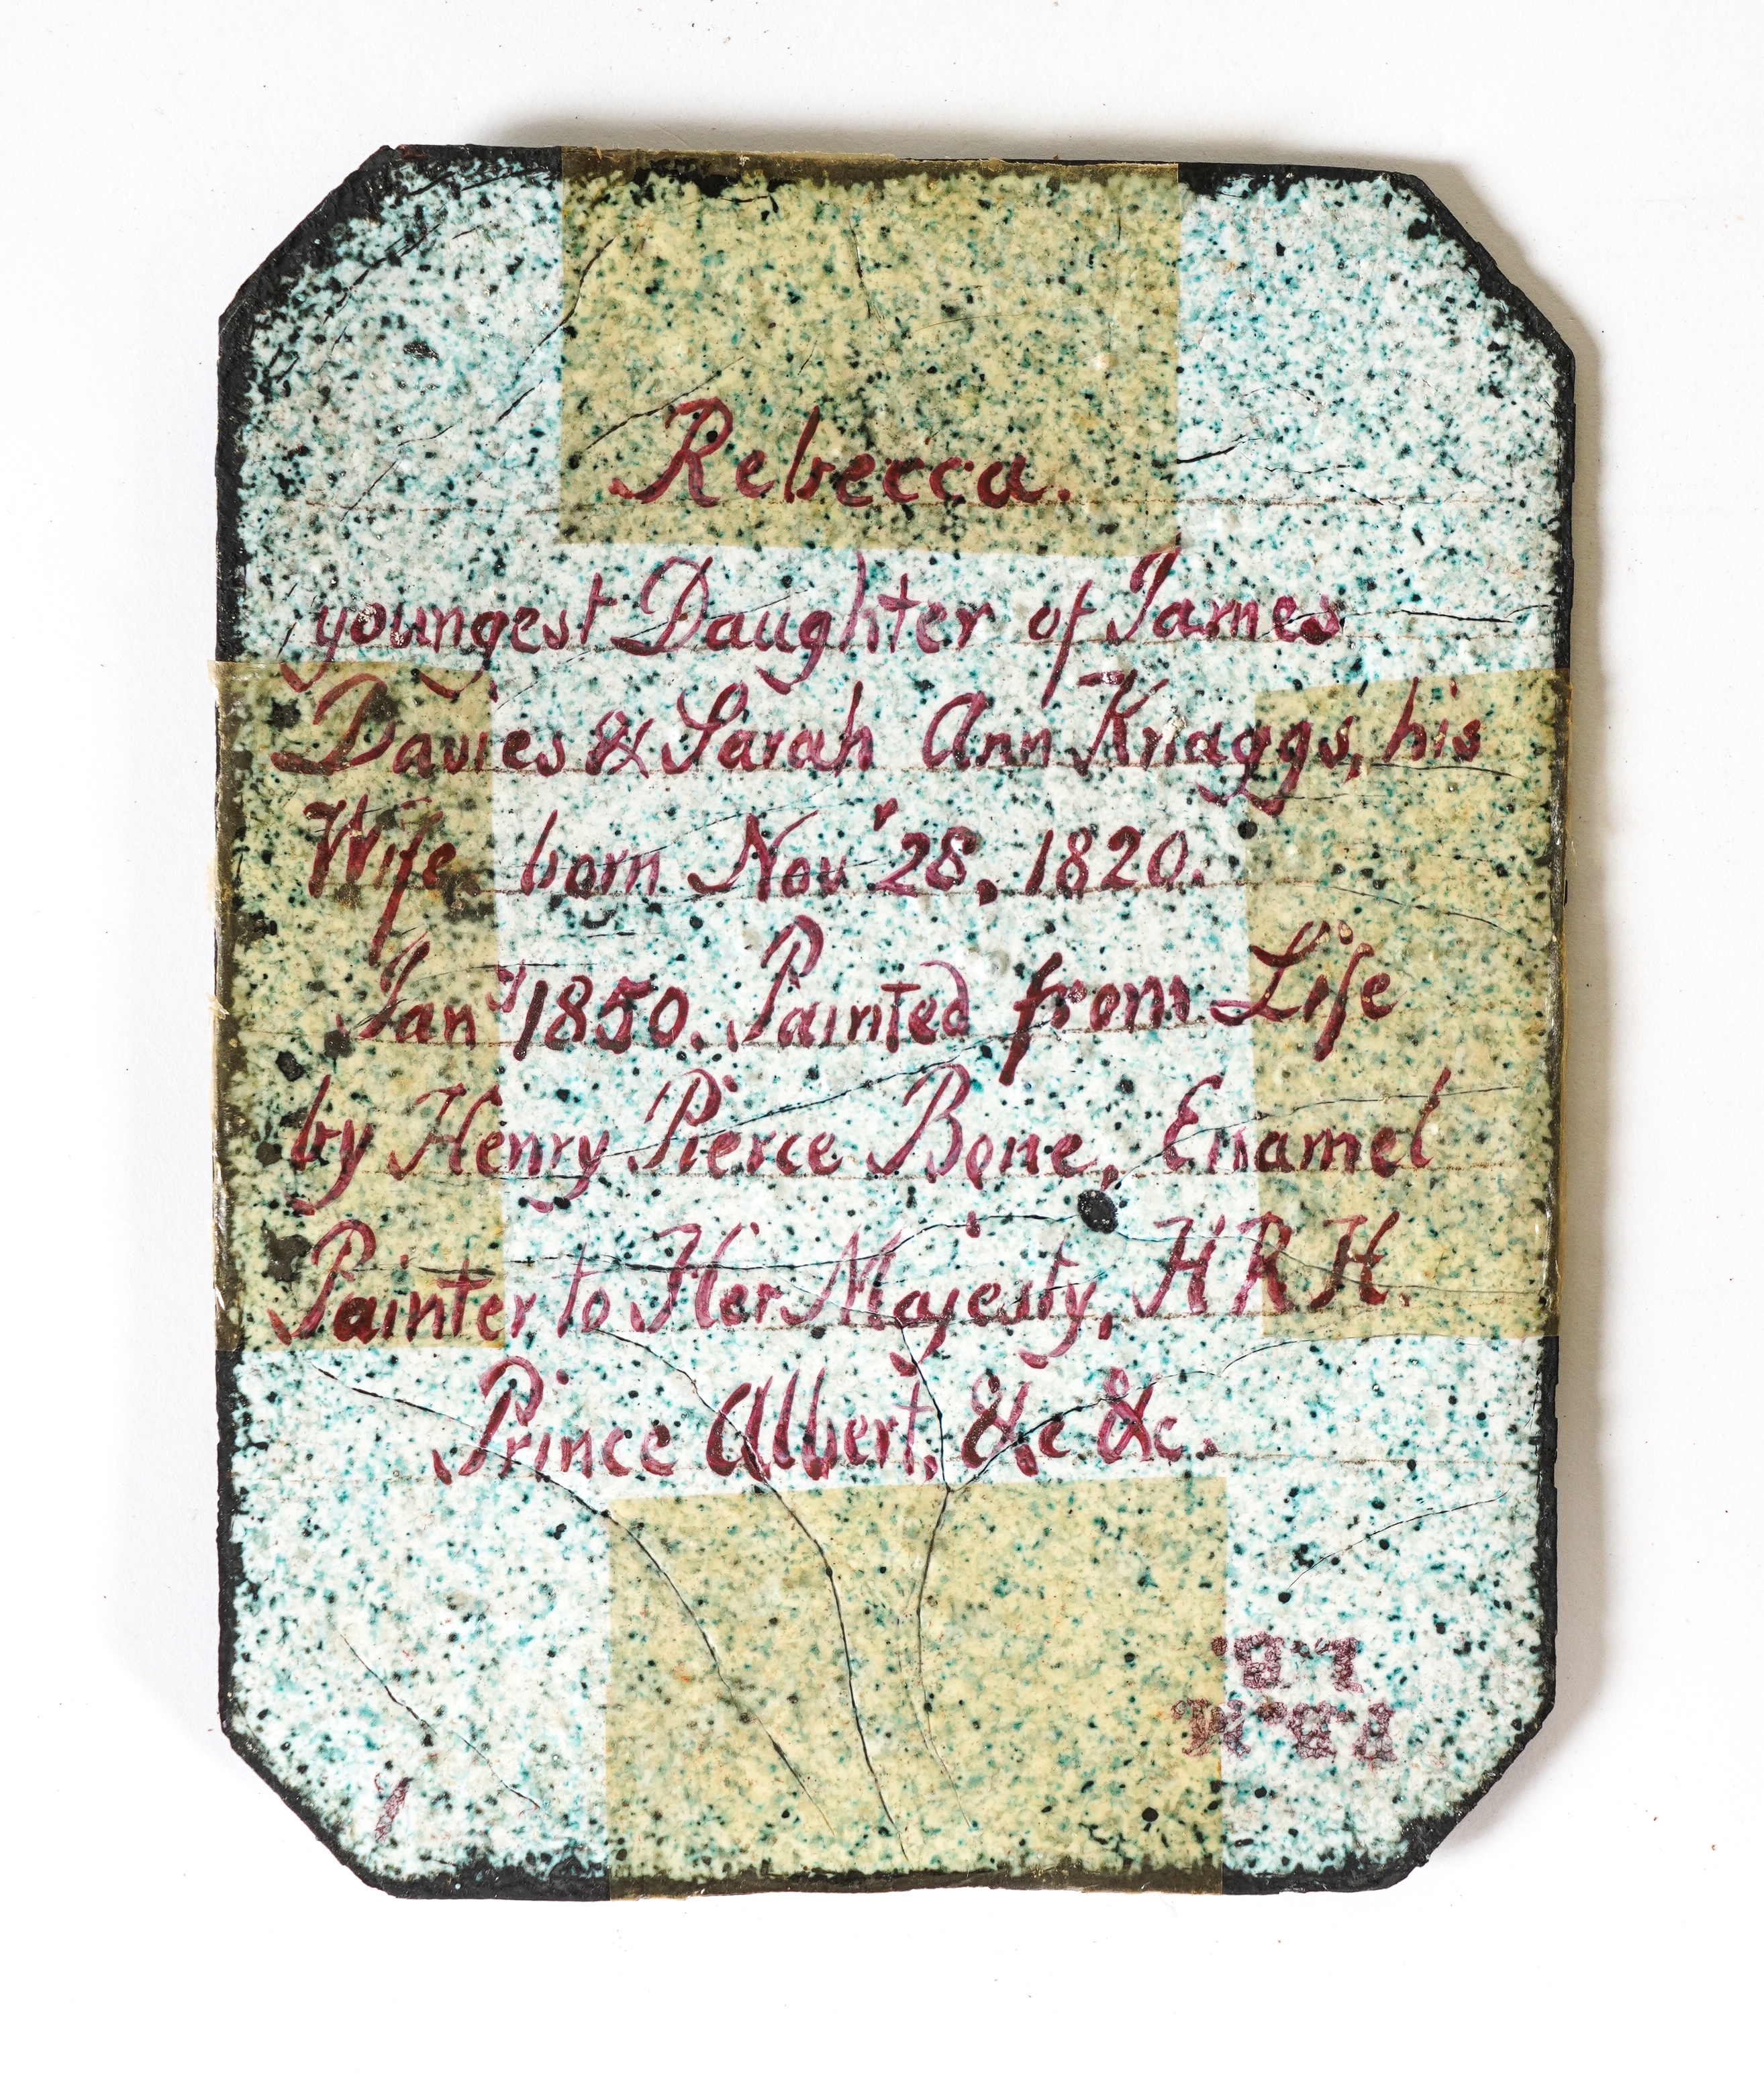 Rebecca.
youngest Daughter of James
Davies & Sarah Ann Knaggs, his
Wife born Nov' 28, 1820.
Jan y 1850. Painted from Life
by Henry Pierce Bone, Enamel
Painter to Her Majesty, H R H.
Prince Albert, &c &c.